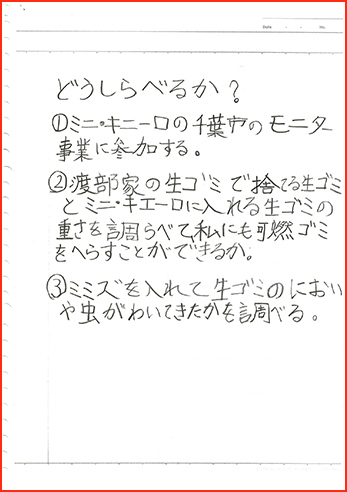 どうしらべるか?
①ミニ・キニーロの千葉市のモニター
事業に参加する。
②渡部家の生ゴミで捨てる生ゴミ
とミニ・キエーロに入れる生ゴミの
重さを調らべて私にも可燃ゴミ
をへらすことができるか。
③ミミズを入れて生ゴミのにおい
や虫がわいてきたかを調べる。